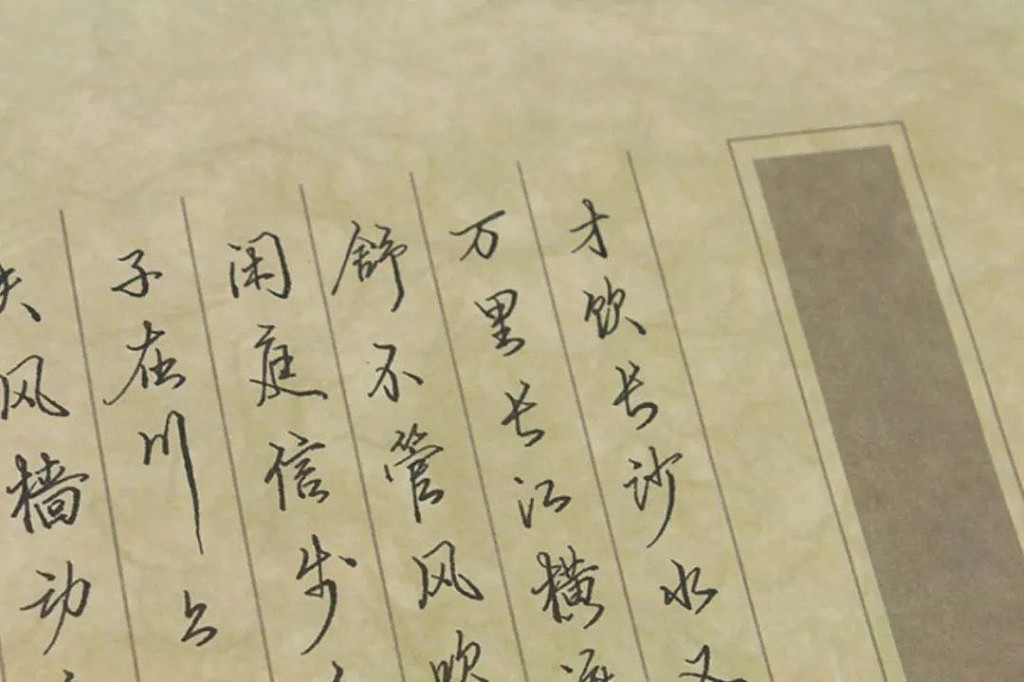 才饮长沙水又
万里长江横渡
舒不管风吹
闲庭信步
子在川上
夫风樯动